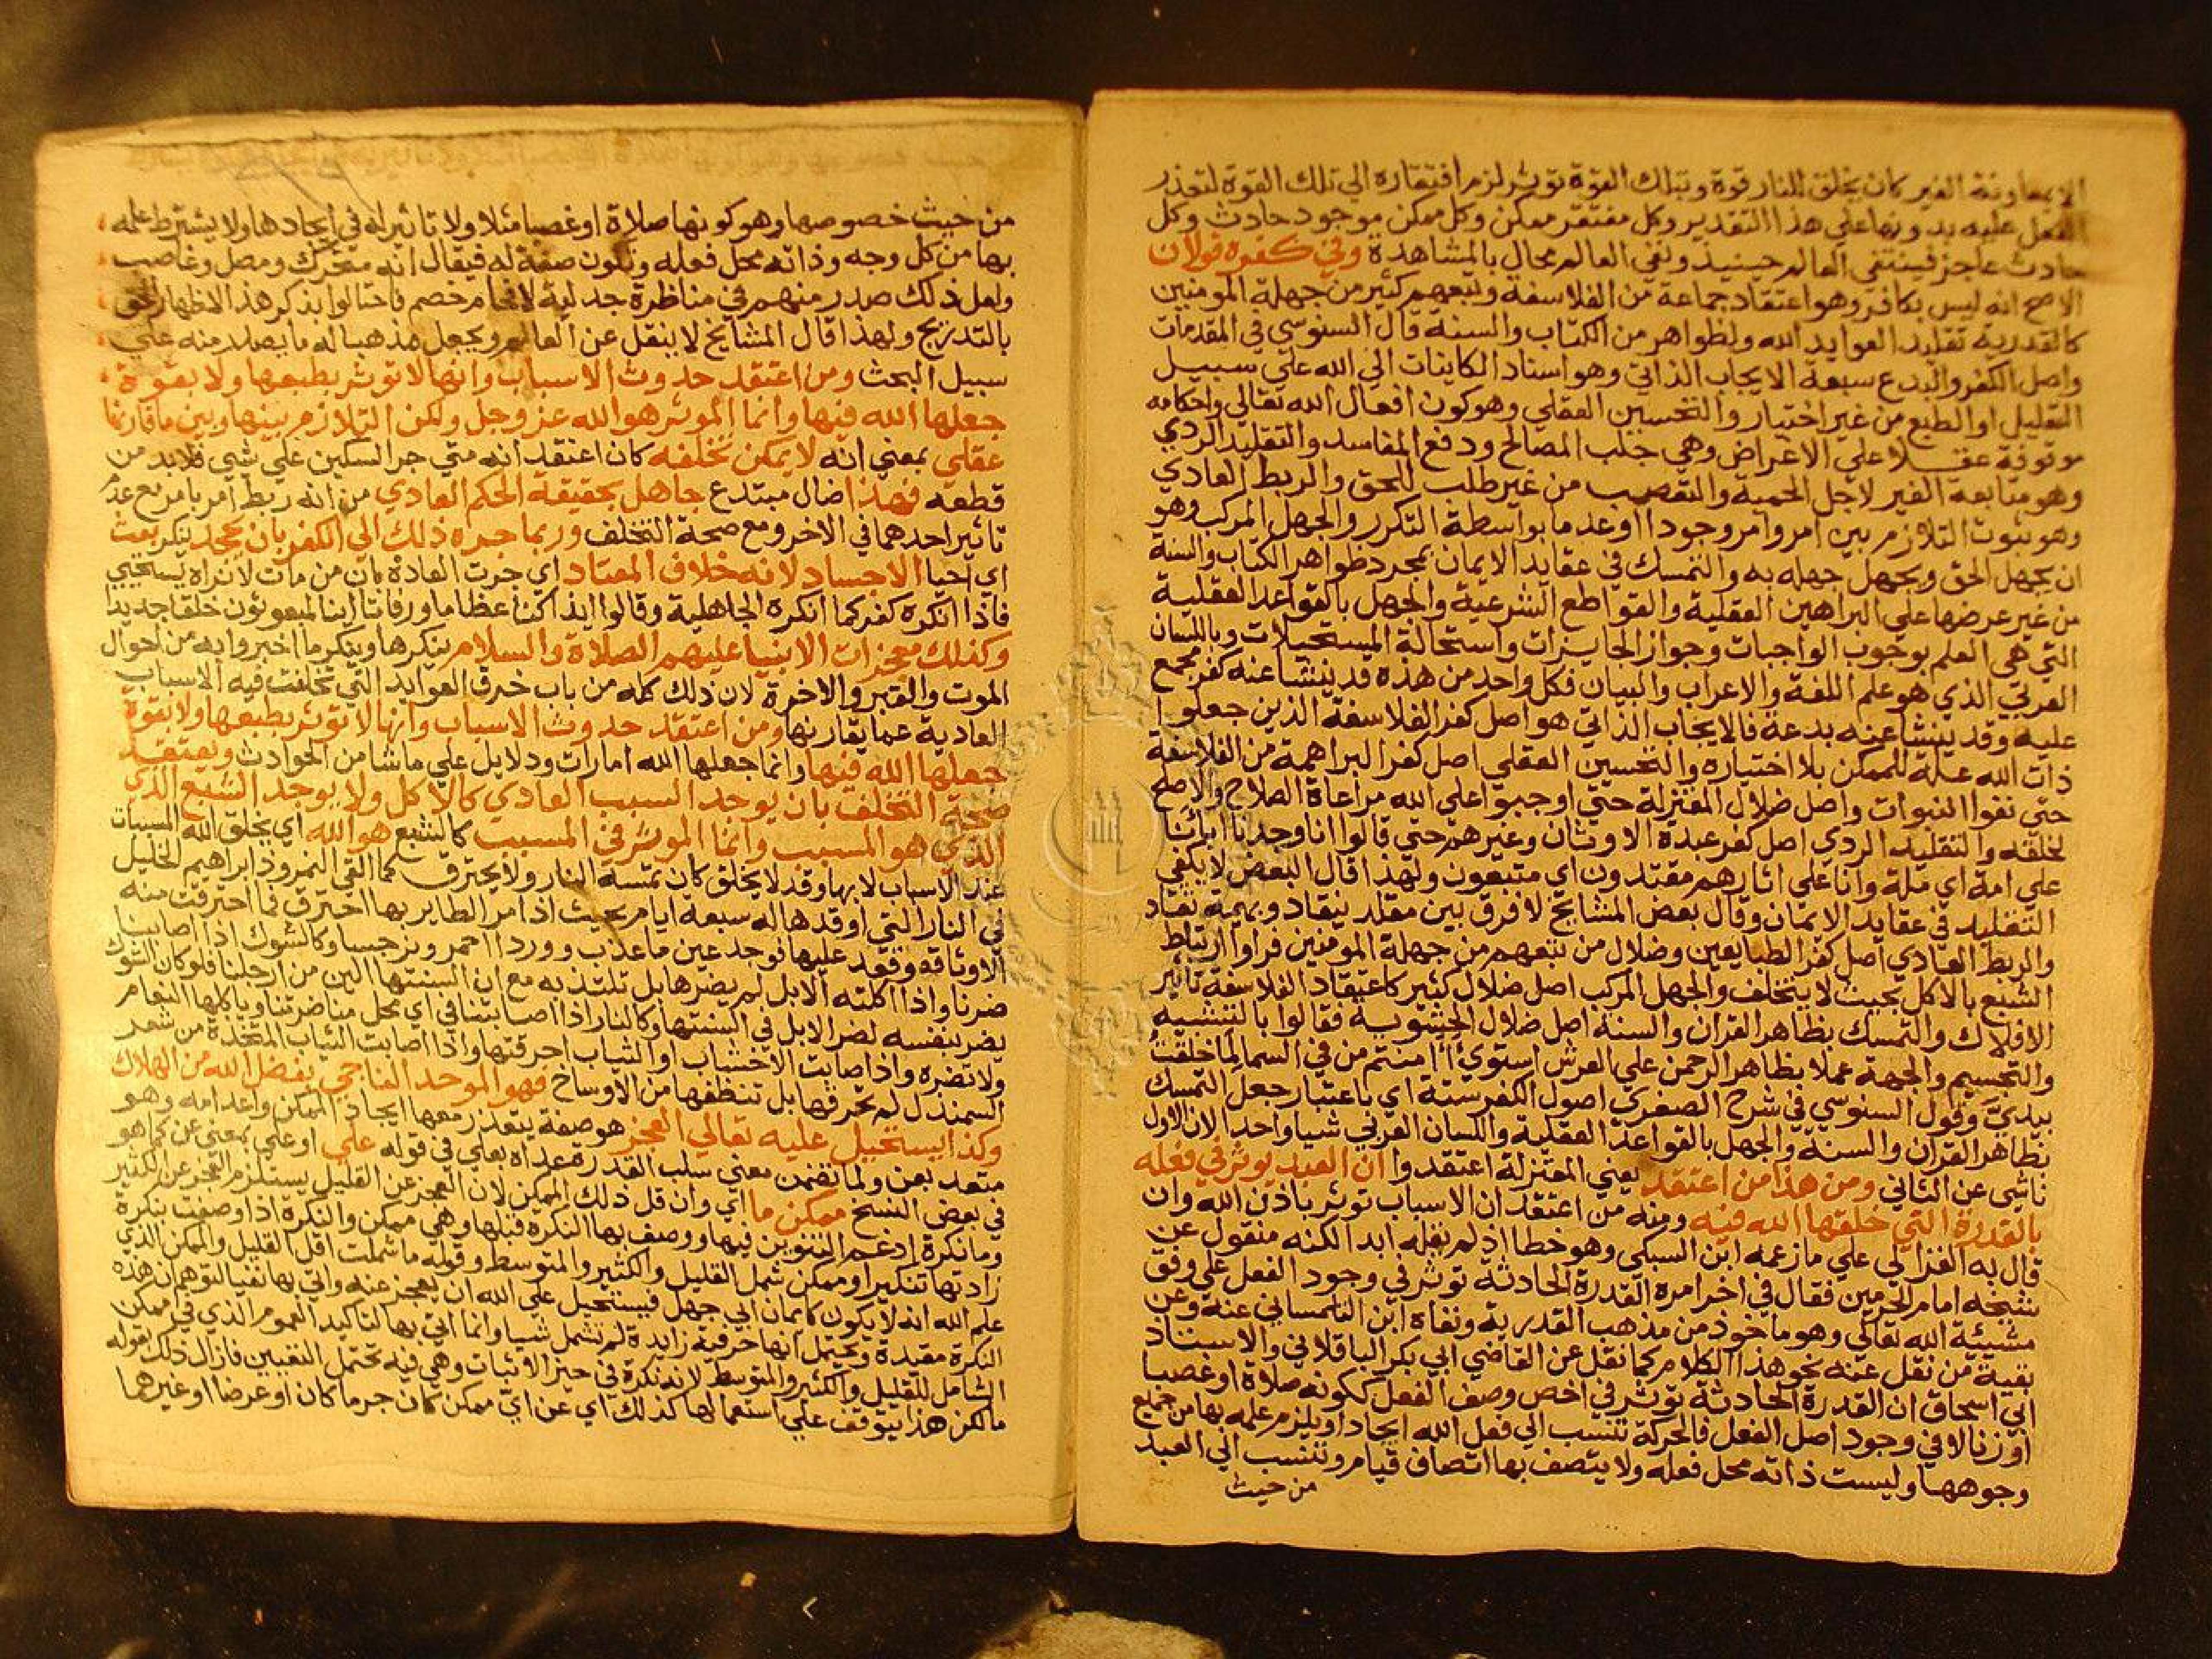 الابمعاونة الغير كان يخلق للنار قوة وبتلك القوة توثر لزم افتقاره الي تلك القوة لتعذر
الفعل عليه بدونها علي هذا التقدير وكل مفتقر ممكن وكل ممكن موجود حادث وكل
حادث عاجز فينتفي العالم حينيذ ونفي العالم محال بالمشاهدة وفي كفره قولان
الاصح انه ليس بكافر وهو اعتقاد جماعة من الفلاسفة وتبعهم كثير من جهلة المومنين
كالقدرية تقليد العوايد الله ولظواهر من الكتاب والسنة قال السنوسي في المقدمات
واصل الكفر والبدع سبعة الايجاب الذاتي وهو اسناد الكاينات الي الله علي سبيل
التعليل او الطبع من غير اختيار والتحسين العقلي وهو كون افعال الله تعالي واحكامه
موقوفة عقلا علي الاغراض وهي جلب المصالح ودفع المفاسد والتقليد الردي
وهو متابعة الغير لاجل الحمية والتعصب من غير طلب للحق والربط العادي
وهو ثبوت التلازم بين امر وامر وجودا او عدما بواسطة التكرر والجهل المركب وهو
ان يجهل الحق ويجهل جهله به والتمسك في عقايد الايمان بمجرد ظواهر الكتاب والسنة
من غير عرضها علي البراهين العقلية والقواطع الشرعية والجهل بالقواعد العقلية
التي هي العلم بوجوب الواجبات وجواز الجايزات واستحالة المستحيلات وباللسان
العربي الذي هو علم اللغة والاعراب والبيان فكل واحد من هذه قد ينشا عنه كفر مجمع
عليه وقد ينشا عنه بدعة فالايجاب الذاتي هو اصل كفر الفلاسفة الذين جعلوا
ذات الله علة للممكن بلا اختياره والتحسين العقلي اصل كفر البراهمة من الفلاسفة
حتي نفوا النبوات واصل ضلال المعتزلة حتي اوجبوا علي الله مراعاة الصلاح والاصلح
لخلقه والتقليد الردي اصل كفر عبدة الاوثان وغيرهم حتي قالوا انا وجدنا ابائنا
علي امة اي ملة وانا علي اثارهم مقتدون اي متبعون ولهذا قال البعض لا يكفي
التقليد في عقايد الايمان وقال بعض المشايخ لا فرق بين مقلد ينقاد وبهيمة تقاد
والربط العادي اصل كفر الطبايعين وضلال من تبعهم من جهلة المومنين فراوا ارتباط
الشبع بالاكل بحيث لا يتخلف والجهل المركب اصل ضلال كثير كاعتقاد الفلاسفة تاثير
الافلاك والتمسك بظاهر القران والسنة اصل ضلال الحشوية فقالوا بالتشبيه
والتجسيم والجهة عملا بظاهر الرحمن علي العرش استوي أامنتم من في السما لما خلقت
بيدي وقول السنوسي في شرح الصغري اصول الكفر ستة اي باعتبار جعل التمسك
بظاهر القران والسنة والجهل بالقواعد العقلية واللسان العربي شيا واحدا لان الاول
ناشي عن الثاني ومن هذا من اعتقد يعني المعتزلة اعتقدوا ان العبد يوثر في فعله
بالقدرة التي خلقها الله فيه ومنه من اعتقد ان الاسباب توثر باذن الله وان
قال به الغزالي علي ما زعمه ابن السبكي وهو خطا اذ لم نقله ابدا لكنه منقول عن
شيخه امام الحرمين فقال في اخر امره القدرة الحادثة توثر في وجود الفعل علي وفق
مشيئة الله تعالي وهو ماخوذ من مذهب القدرية ونفاه ابن التلمساني عنه وعن
بقية من نقل عنه نحو هذا الكلام كما نقل عن القاضي ابي بكر الباقلاني والاستاذ
ابي اسحاق ان القدرة الحادثة توثر في اخص وصف الفعل ككونه صلاة او غصبا
او زنا لا في وجود اصل الفعل فالحركة تنسب الي فعل الله ايجادا ويلزم علمه بها من جميع
وجوهها وليست ذاته محل فعله ولا يتصف بها اتصاف قيام وتنسب الي العبد
من حيث
من حيث خصوصها وهو كونها صلاة او غصبا مثلا ولا تاثير له في ايجادها ولا يشترط علمه
بها من كل وجه وذاته محل فعله وتكون صفة له فيقال انه متحرك ومصل وغاصب
ولعل ذلك صدر منهم في مناظرة جدلية لافحام خصم فاحتالوا بذكر هذا لاظهار الحق
بالتدريج ولهذا قال المشايخ لا ينقل عن العالم ويجعل مذهبا له ما يصدر منه علي
سبيل البحث ومن اعتقد حدوث الاسباب وانها لا توثر بطبعها ولا بقوة
جعلها الله فيها وانما الموثر هو الله عز وجل ولكن التلازم بينها وبين ما قارنها
عقلي بمعني انه لا يمكن تخلفه كان اعتقد انه متي جر السكين علي شي فلا بد من
قطعه فهذا ضال مبتدع جاهل بحقيقة الحكم العادي من انه ربط امر بامر مع عدم
تاثير احدهما في الاخر ومع صحة التخلف وربما جره ذلك الي الكفر بان يجحد ينكر بعث
اي احيا الاجساد لانه خلاف المعتاد اي جرت العادة بان من مات لا نراه يستحيي
فاذا انكره كفر كما انكره الجاهلية وقالوا ايذا كنا عظاما ورفاتا اينا لمبعوثون خلقا جديدا
وكذلك معجزات الانبيا عليهم الصلاة والسلام ينكرها وينكر ما اخبروا به من احوال
الموت والقبر والاخرة لان ذلك كله من باب خرق العوايد التي تخالفت فيه الاسباب
العادية عما يقارنها ومن اعتقد حدوث الاسباب وانها لا توثر بطبعها ولا بقوة
جعلها الله فيها وانما جعلها الله امارات ودلايل علي ما شا من الحوادث ويعتقد
صحة التخلف بان يوجد السبب العادي كالاكل ولا يوجد الشبع الذي
الذي هو المسبب وانما الموثر في المسبب كالشبع هو الله اي يخلق الله المسببات
عند الاسباب لا بها وقد لا يخلق كان تمسه النار ولا يحترق كما القي النمروذ ابراهيم الخليل
في النار التي اوقدها له سبعة ايام بحيث اذا مر الطاير بها احترق فما احترقت منه
الا وثاقه وقعد عليها فوجد عين ماء عذب ووردا احمر ونرجسا وكالشوك اذا اصابنا
ضرنا واذا اكلته الابل لم يضرها بل تلتذ به مع ان السنتها الين من ارجلنا فلو كان الشوك
يضر بنفسه لضر الابل في السنتها وكالنار اذا اصابتنا في اي محل منا ضرتنا وياكلها النعام
ولا تضره واذا اصابت الاخشاب او الثياب احرقتها واذا اصابت الثياب المتخذة من شعر
السمندل لم تحرقها بل تنظفها من الاوساخ فهو الموحد الناجي بفضل الله من الهلاك
وكذا يستحيل عليه تعالي العجز هو صفة يتعذر معها ايجاد الممكن واعدامه وهو
متعد بعن ولما تضمن معني سلب القدرة عداه بعلي في قوله علي او علي بمعني عن كما هو
في بعض النسخ ممكن ما اي وان قل ذلك الممكن لان العجز عن القليل يستلزم العجز عن الكثير
وما نكرة ادغم التنوين فيها ووصف بها النكرة قبلها وهي ممكن والنكرة اذا وصفت بنكرة
زادتها تنكيرا وممكن شمل القليل والكثير والمتوسط وقوله ما شملت اقل القليل والممكن الذي
علم الله انه لا يكون كايمان ابي جهل فيستحيل علي الله ان يعجز عنه واتي بها نفيا لتوهم ان هذه
النكرة مقيدة ويحتمل انها حرفية زايدة لم تشمل شيا وانما اتي بها لتاكيد العموم الذي في ممكن
الشامل للقليل والكثير والمتوسط لانه نكرة في حيز الاثبات وهي فيه تحتمل التقيين فازال ذلك بقوله
ما لكن هذا يتوقف علي استعمالها كذلك اي عن اي ممكن كان جرما كان او عرضا او غيرهما